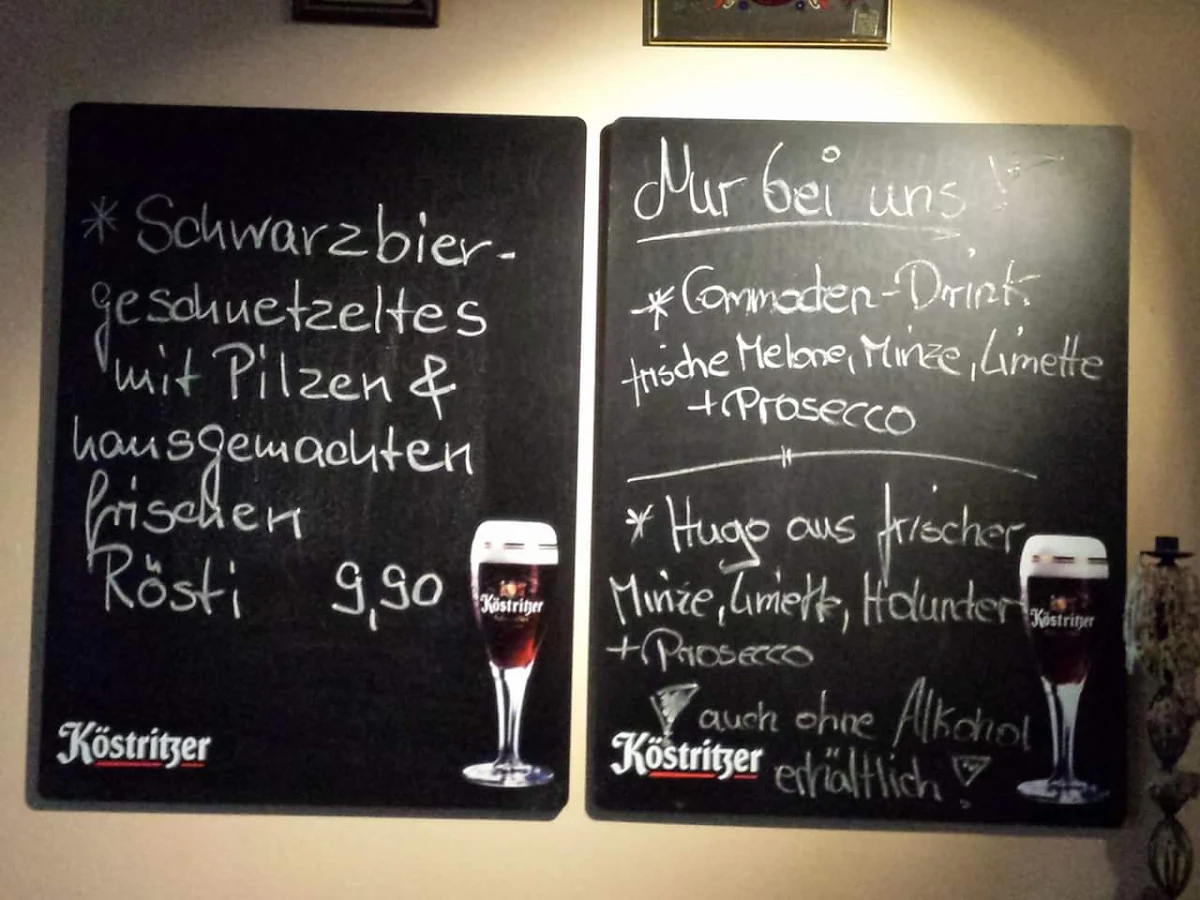 * Schwarzbier-
geschnetzeltes
mit Pilzen &
hausgemachten
frischen
Rösti 9,90
Köstritzer
Köstritzer
Nur bei uns!
* Commoden-Drink
frische Melone, Minze, Limette
+ Prosecco
* Hugo aus frischer
Minze, Limette, Holunder
+ Prosecco
auch ohne Alkohol
erhältlich!
Köstritzer
Köstritzer